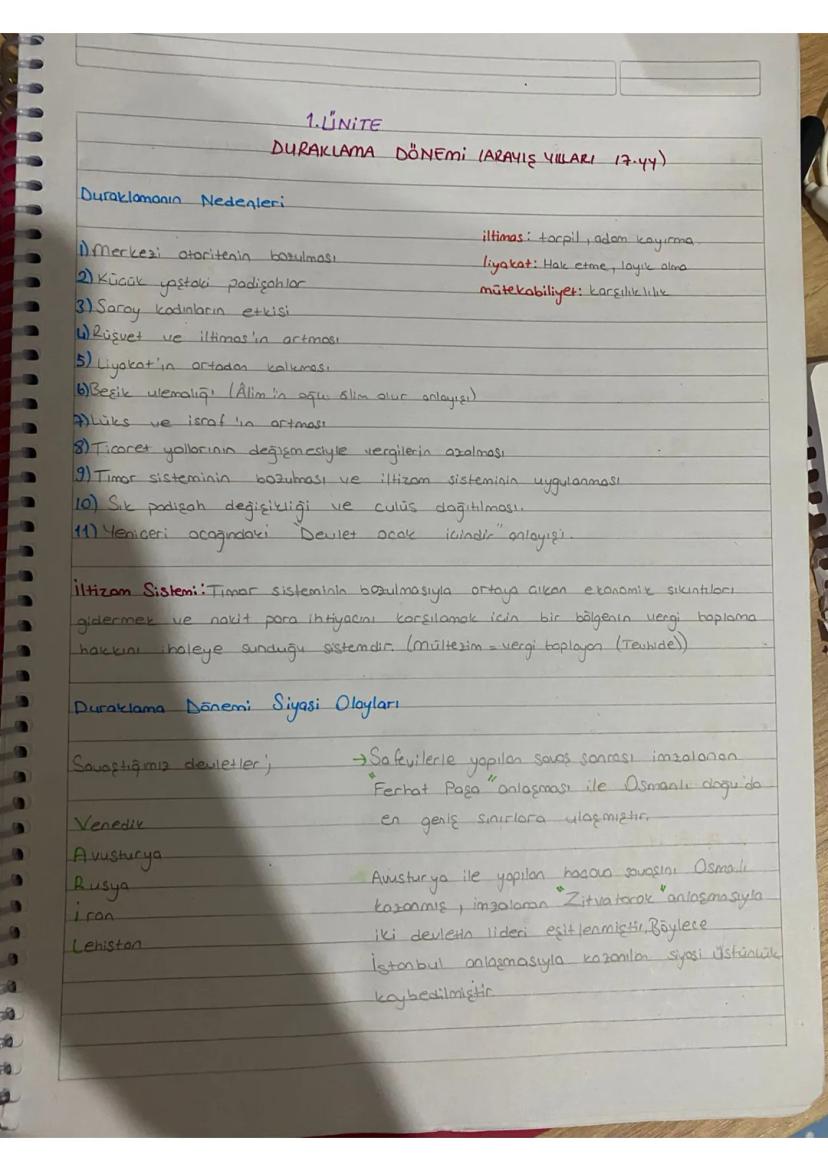 1.ÜNİTE
DURAKLAMA DÖNEMİ (ARAYIŞ YILLARI 17.yy)
Duraklamanın Nedenleri
iltimas: torpil, adam kayırma
liyakat: Hak etme, layık olma
mütekabiliyet: karşılıklılık
1) Merkezi otoritenin bozulması
2) Küçük yaştaki padişahlar
3) Saray kadınların etkisi
4) Rüşvet ve iltimas'ın artması
5) Liyakat'ın ortadan kalkması
6) Beşik ulemalığı (Âlim'in oğlu âlim olur anlayışı)
7) Lüks ve israf'ın artması
8) Ticaret yollarının değişmesiyle vergilerin azalması
9) Tımar sisteminin bozulması ve iltizam sisteminin uygulanması
10) Sık padişah değişikliği ve culüs dağıtılması.
11) Yeniçeri ocağındaki "Devlet ocak içindir" anlayışı.
İltizam Sistemi: Tımar sisteminin bozulmasıyla ortaya çıkan ekonomik sıkıntıları
gidermek ve nakit para ihtiyacını karşılamak için bir bölgenin vergi toplama
hakkını ihaleye sunduğu sistemdir. (Mültezim = vergi toplayan (Tevhide))
Duraklama Dönemi Siyasi Olayları
Savaştığımız devletler;
Venedik
Avusturya
Rusya
İran
Lehistan
→ Safevilerle yapılan savaş sonrası imzalanan
"Ferhat Paşa" anlaşması ile Osmanlı doğu'da
en geniş sınırlara ulaşmıştır.
Avusturya ile yapılan haçova savaşını Osmalı
kazanmış, imzalanan "Zitvatorok" anlaşmasıyla
iki devletin lideri eşitlenmiştir. Böylece
İstanbul anlaşmasıyla kazanılan siyasi üstünlük
kaybedilmiştir.